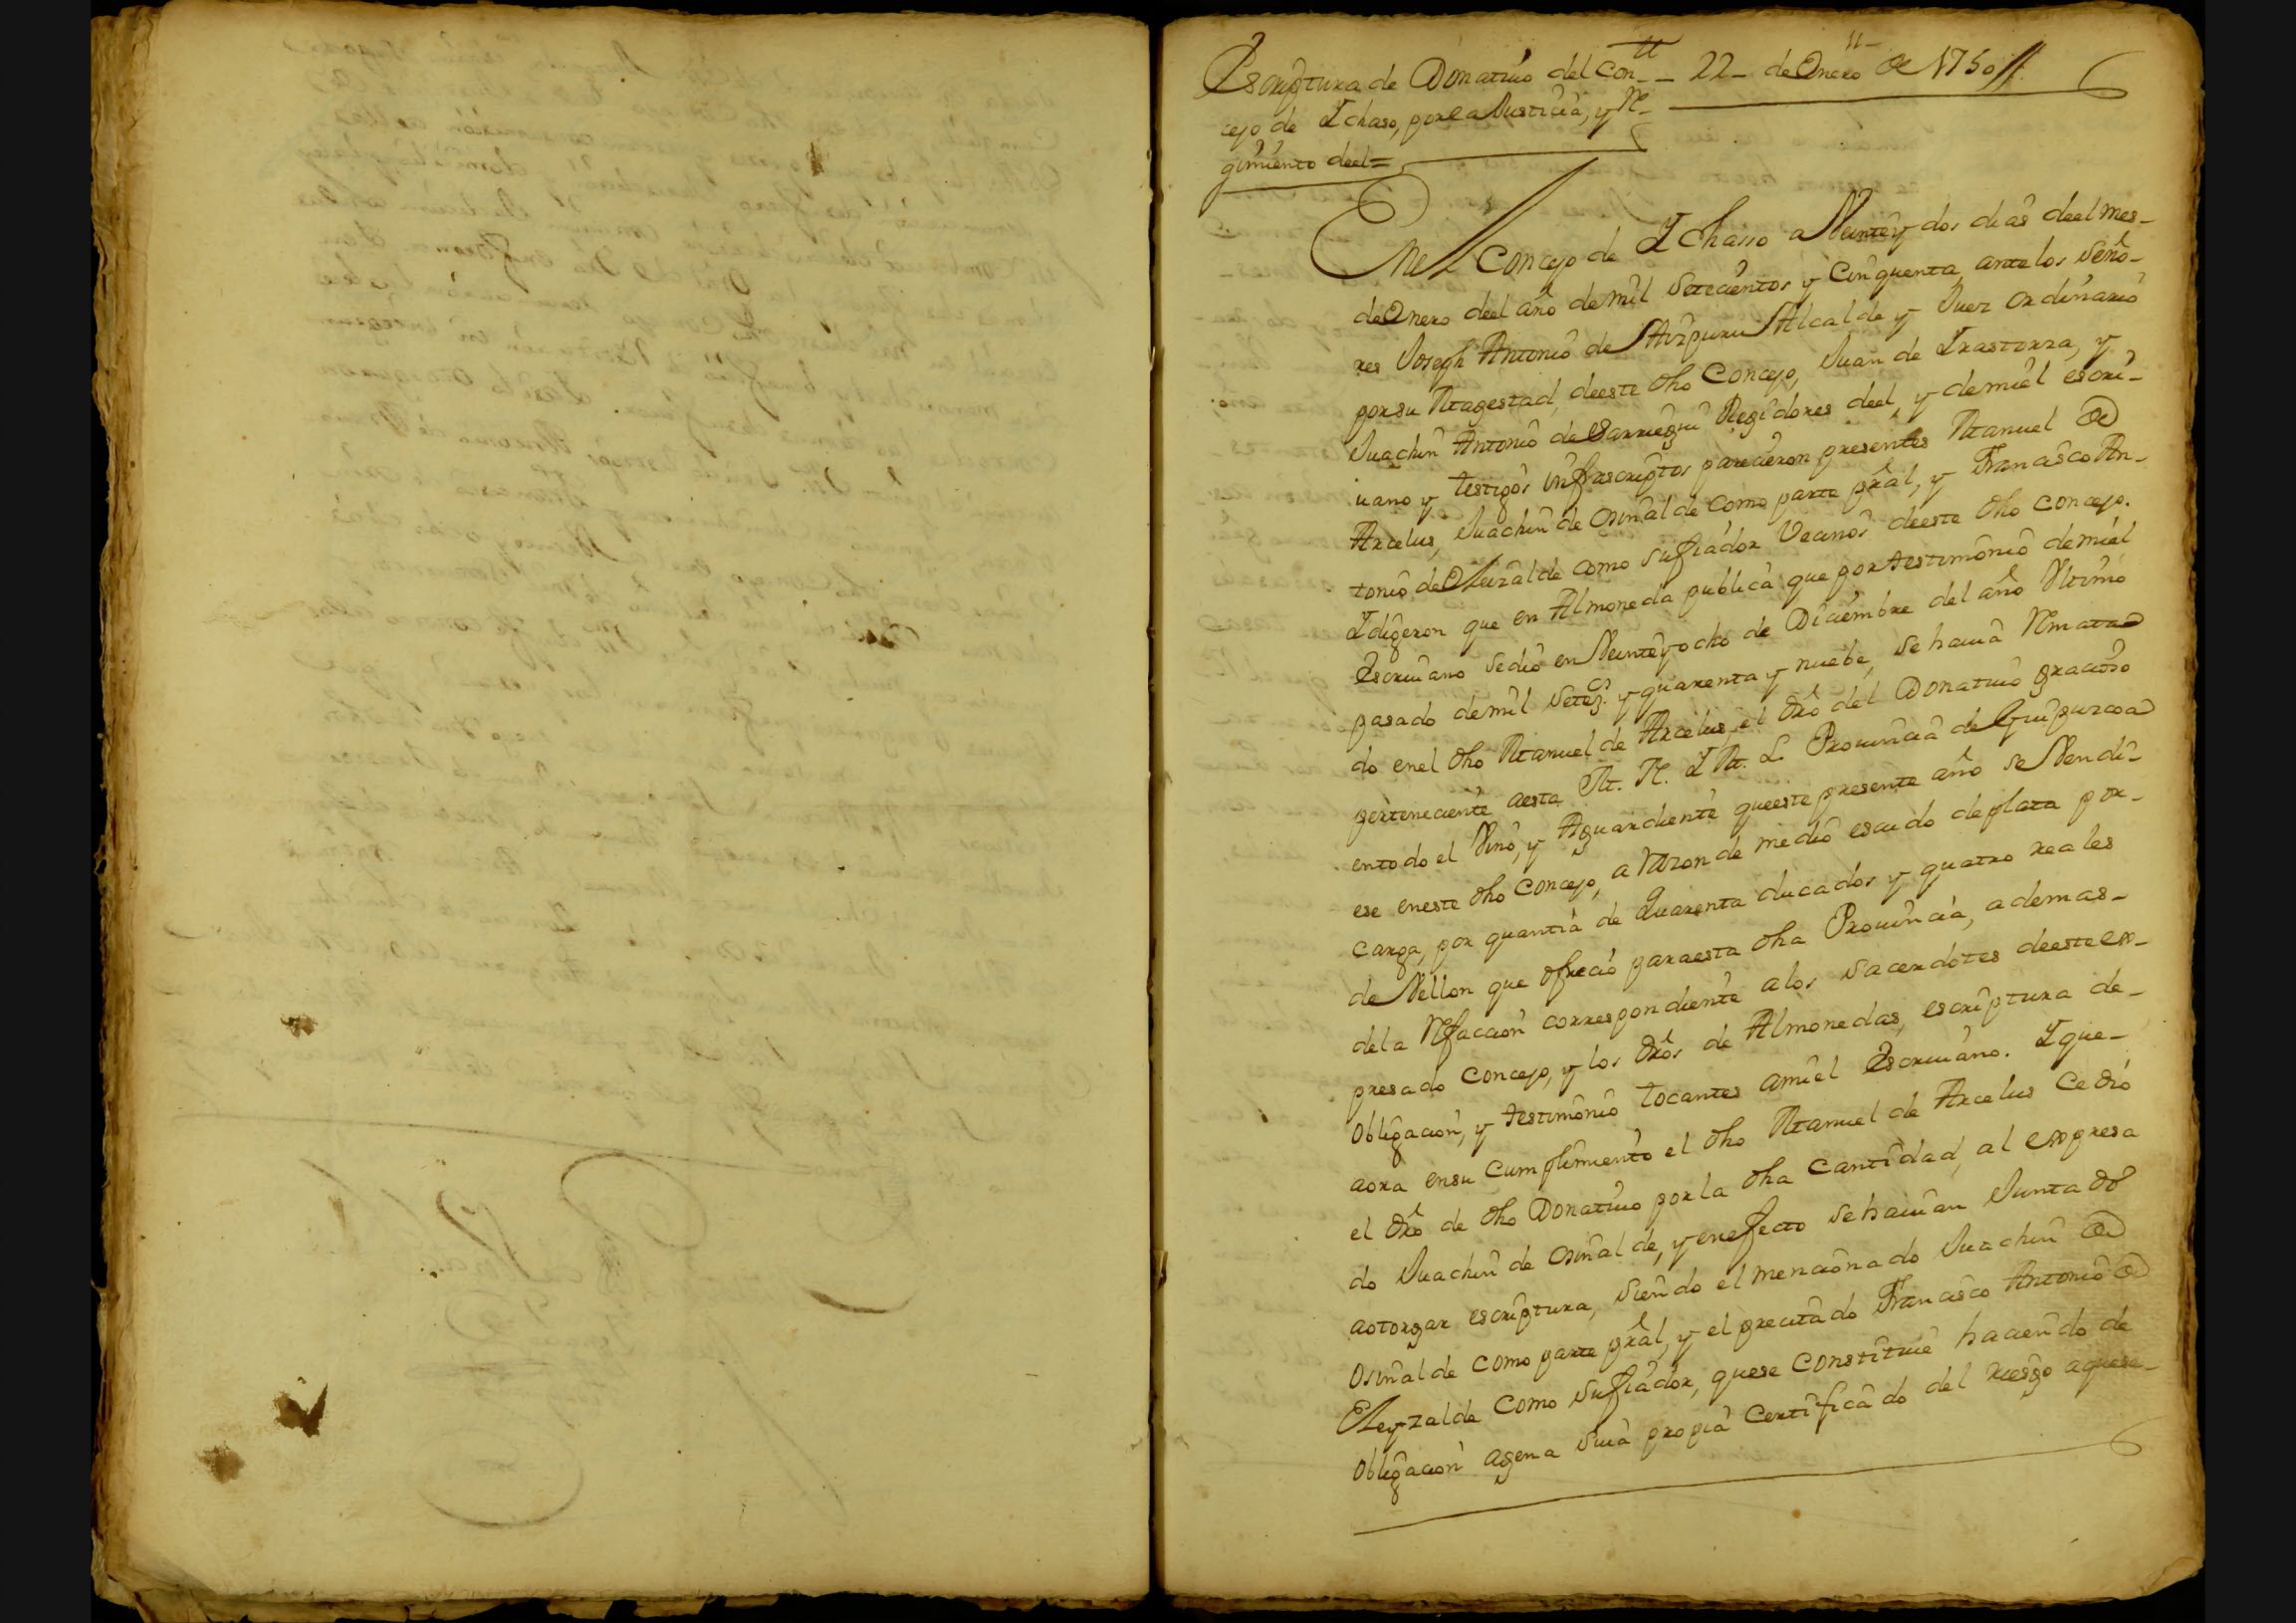 11-
Escriptura de Donatiuo del Con_ _ 22_ de Enero de 1750 //
cejo de Ychaso, por la Justicia, y Re_
gimiento deel=
En el Concejo de Ychasso a Veinte y dos dias deel mes_
de Enero deel año de mil Setecientos y Cinquenta, ante los Seño_
res Joseph Antonio de Aizpuru Alcalde y Juez ordinario
por su Magestad, deeste dho Concejo, Juan de Yrastorza, y
Juachin Antonio de Sarriegui Regidores deel, y de mi el escri_
uano y testigos infrascriptos parecieron presentes Manuel de
Arcelus, Juachin de Osinalde como parte pral, y Francisco An_
tonio de Eleizalde como su fiador Vecinos deeste dho Concejo.
Y digeron que en Almoneda publica que por testimonio de mi el
Escriuano se dio en Veinte y ocho de Diciembre del año Ultimo
pasado de mil Setez.os y quarenta y nuebe, se hauia Remata_
do en el dho Manuel de Arcelus, el dro del Donatiuo gracioso
perteneciente a esta M. N. Y M. L. Prouincia de Guipuzcoa
en todo el Vino, y Aguardiente que este presente año se Vendi_
ese en este dho Concejo, a Razon de medio escudo de plata por_
carga, por quantia de Quarenta ducados y quatro reales
de Vellon que ofrecio para esta dha Prouincia, ademas_
de la Refaccion correspondiente a los Sacerdotes deeste ex_
presado Concejo, y los dros de Almonedas, escriptura de_
Obligacion, y testimonio tocantes a mi el Escriuano. Y que_
aora en su cumplimiento el dho Manuel de Arcelus Cedio
el dro de dho Donatiuo por la dha Cantidad, al expresa
do Juachin de Osinalde, y en efecto se hauian Juntado
a otorgar escriptura, Siendo el mencionado Juachin de
Osinalde como parte pral, y el precitado Francisco Antonio de
Eleyzalde como su fiador, que se constituie haciendo de
Obligacion agena Suia propia Certificado del riesgo a que se_